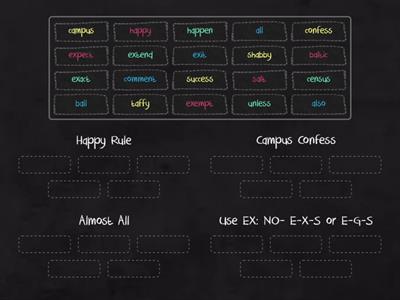 campus happy happen all confess
expect extend exit shabby baltic
exact comment success salt census
ball taffy exempt unless also
Happy Rule Campus Confess
Almost All Use EX: NO- E-X-S or E-G-S